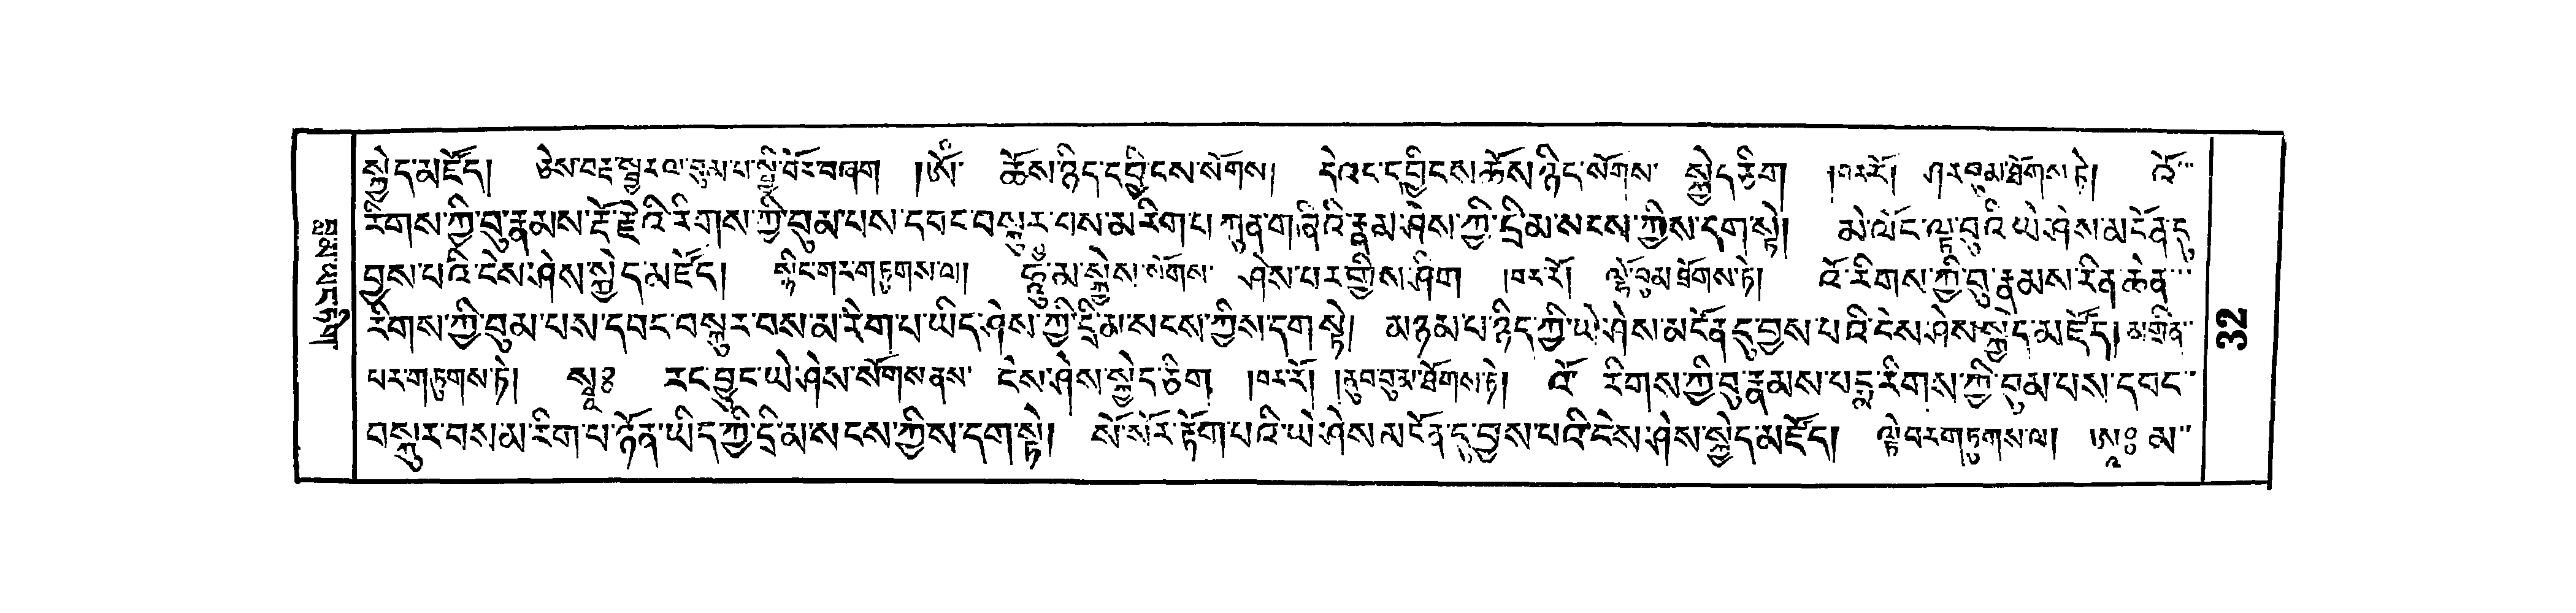 སྐྱེད་མཛོད། ཅེས་བརྡ་སྦྱར་ལ་བུམ་པ་སྤྱི་བོར་བཞག །ཨོཾ་ ཆོས་ཉིད་དབྱིངས་སོགས། དེའང་དབྱིངས་ཆོས་ཉིད་སོགས་ སྐྱེད་ཅིག །བར་རོ། ཤར་བུམ་ཐོགས་ཏེ། འོ་
རིགས་ཀྱི་བུ་རྣམས་རྡོ་རྗེའི་རིགས་ཀྱི་བུམ་པས་དབང་བསྐུར་བས་མ་རིག་པ་ཀུན་གཞིའི་རྣམ་ཤེས་ཀྱི་དྲི་མ་སངས་ཀྱིས་དག་སྟེ། མེ་ལོང་ལྟ་བུའི་ཡེ་ཤེས་མངོན་དུ་
བྱས་པའི་ངེས་ཤེས་སྐྱེད་མཛོད། སྙིང་གར་གཏུགས་ལ། ཧཱུྃ་ མ་སྐྱེས་སོགས་ ཤེས་པར་གྱིས་ཤིག །བར་རོ། ལྷོ་བུམ་ཐོགས་ཏེ། འོ་རིགས་ཀྱི་བུ་རྣམས་རིན་ཆེན་
རིགས་ཀྱི་བུམ་པས་དབང་བསྐུར་བས་མ་རིག་པ་ཡིད་ཤེས་ཀྱི་དྲི་མ་སངས་ཀྱིས་དག་སྟེ། མཉམ་པ་ཉིད་ཀྱི་ཡེ་ཤེས་མངོན་དུ་བྱས་པའི་ངེས་ཤེས་སྐྱེད་མཛོད། མགྲིན་
པར་གཏུགས་ཏེ། སྭཱ༔ རང་བྱུང་ཡེ་ཤེས་སོགས་ནས་ ངེས་ཤེས་སྐྱེད་ཅིག །བར་རོ། །ནུབ་བུམ་ཐོགས་ཏེ། འོ་ རིགས་ཀྱི་བུ་རྣམས་པདྨ་རིགས་ཀྱི་བུམ་པས་དབང་
བསྐུར་བས་མ་རིག་པ་ཉོན་ཡིད་ཀྱི་དྲི་མ་སངས་ཀྱིས་དག་སྟེ། སོ་སོར་རྟོག་པའི་ཡེ་ཤེས་མངོན་དུ་བྱས་པའི་ངེས་ཤེས་སྐྱེད་མཛོད། ལྟེ་བར་གཏུགས་ལ། །ཨཱ༔ མ་